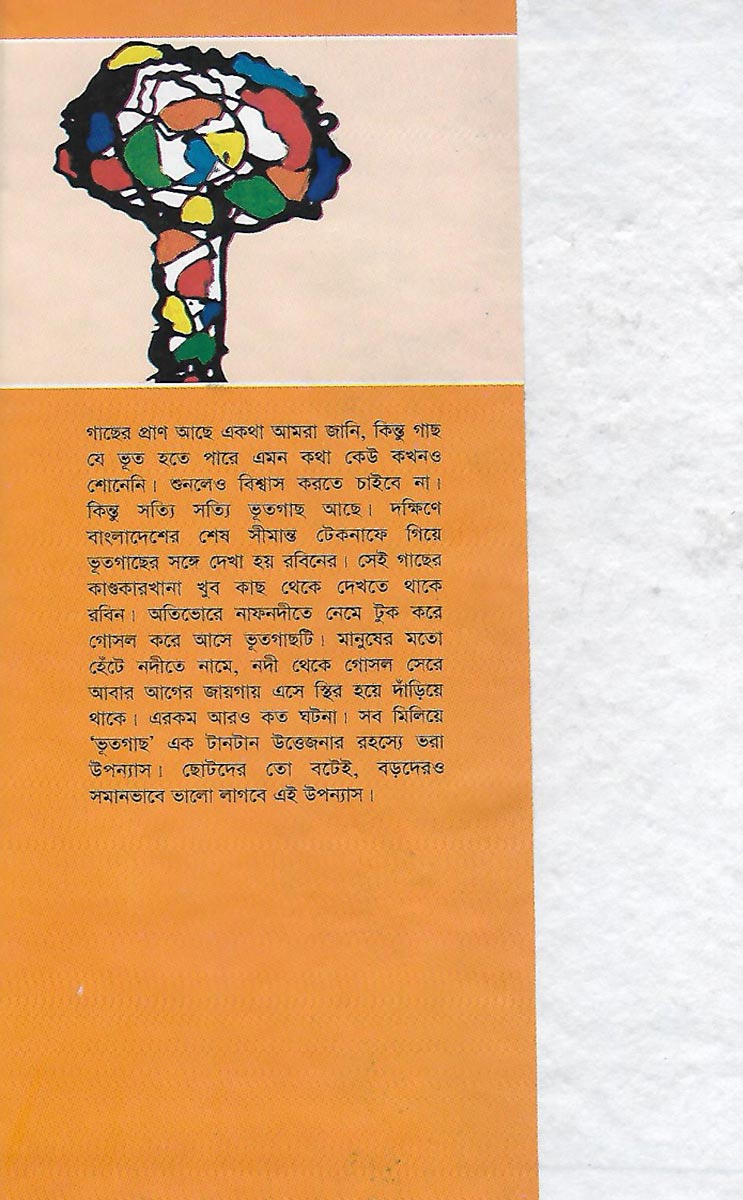 গাছের প্রাণ আছে একথা আমরা জানি, কিন্তু গাছ
যে ভূত হতে পারে এমন কথা কেউ কখনও
শোনেনি। শুনলেও বিশ্বাস করতে চাইবে না।
কিন্তু সত্যি সত্যি ভূতগাছ আছে। দক্ষিণে
বাংলাদেশের শেষ সীমান্ত টেকনাফে গিয়ে
ভূতগাছের সঙ্গে দেখা হয় রবিনের। সেই গাছের
কাণ্ডকারখানা খুব কাছ থেকে দেখতে থাকে
রবিন। অতিভোরে নাফনদীতে নেমে টুক করে
গোসল করে আসে ভূতগাছটি। মানুষের মতো
হেঁটে নদীতে নামে, নদী থেকে গোসল সেরে
আবার আগের জায়গায় এসে স্থির হয়ে দাঁড়িয়ে
থাকে। এরকম আরও কত ঘটনা। সব মিলিয়ে
‘ভূতগাছ’ এক টানটান উত্তেজনার রহস্যে ভরা
উপন্যাস। ছোটদের তো বটেই, বড়দেরও
সমানভাবে ভালো লাগবে এই উপন্যাস।